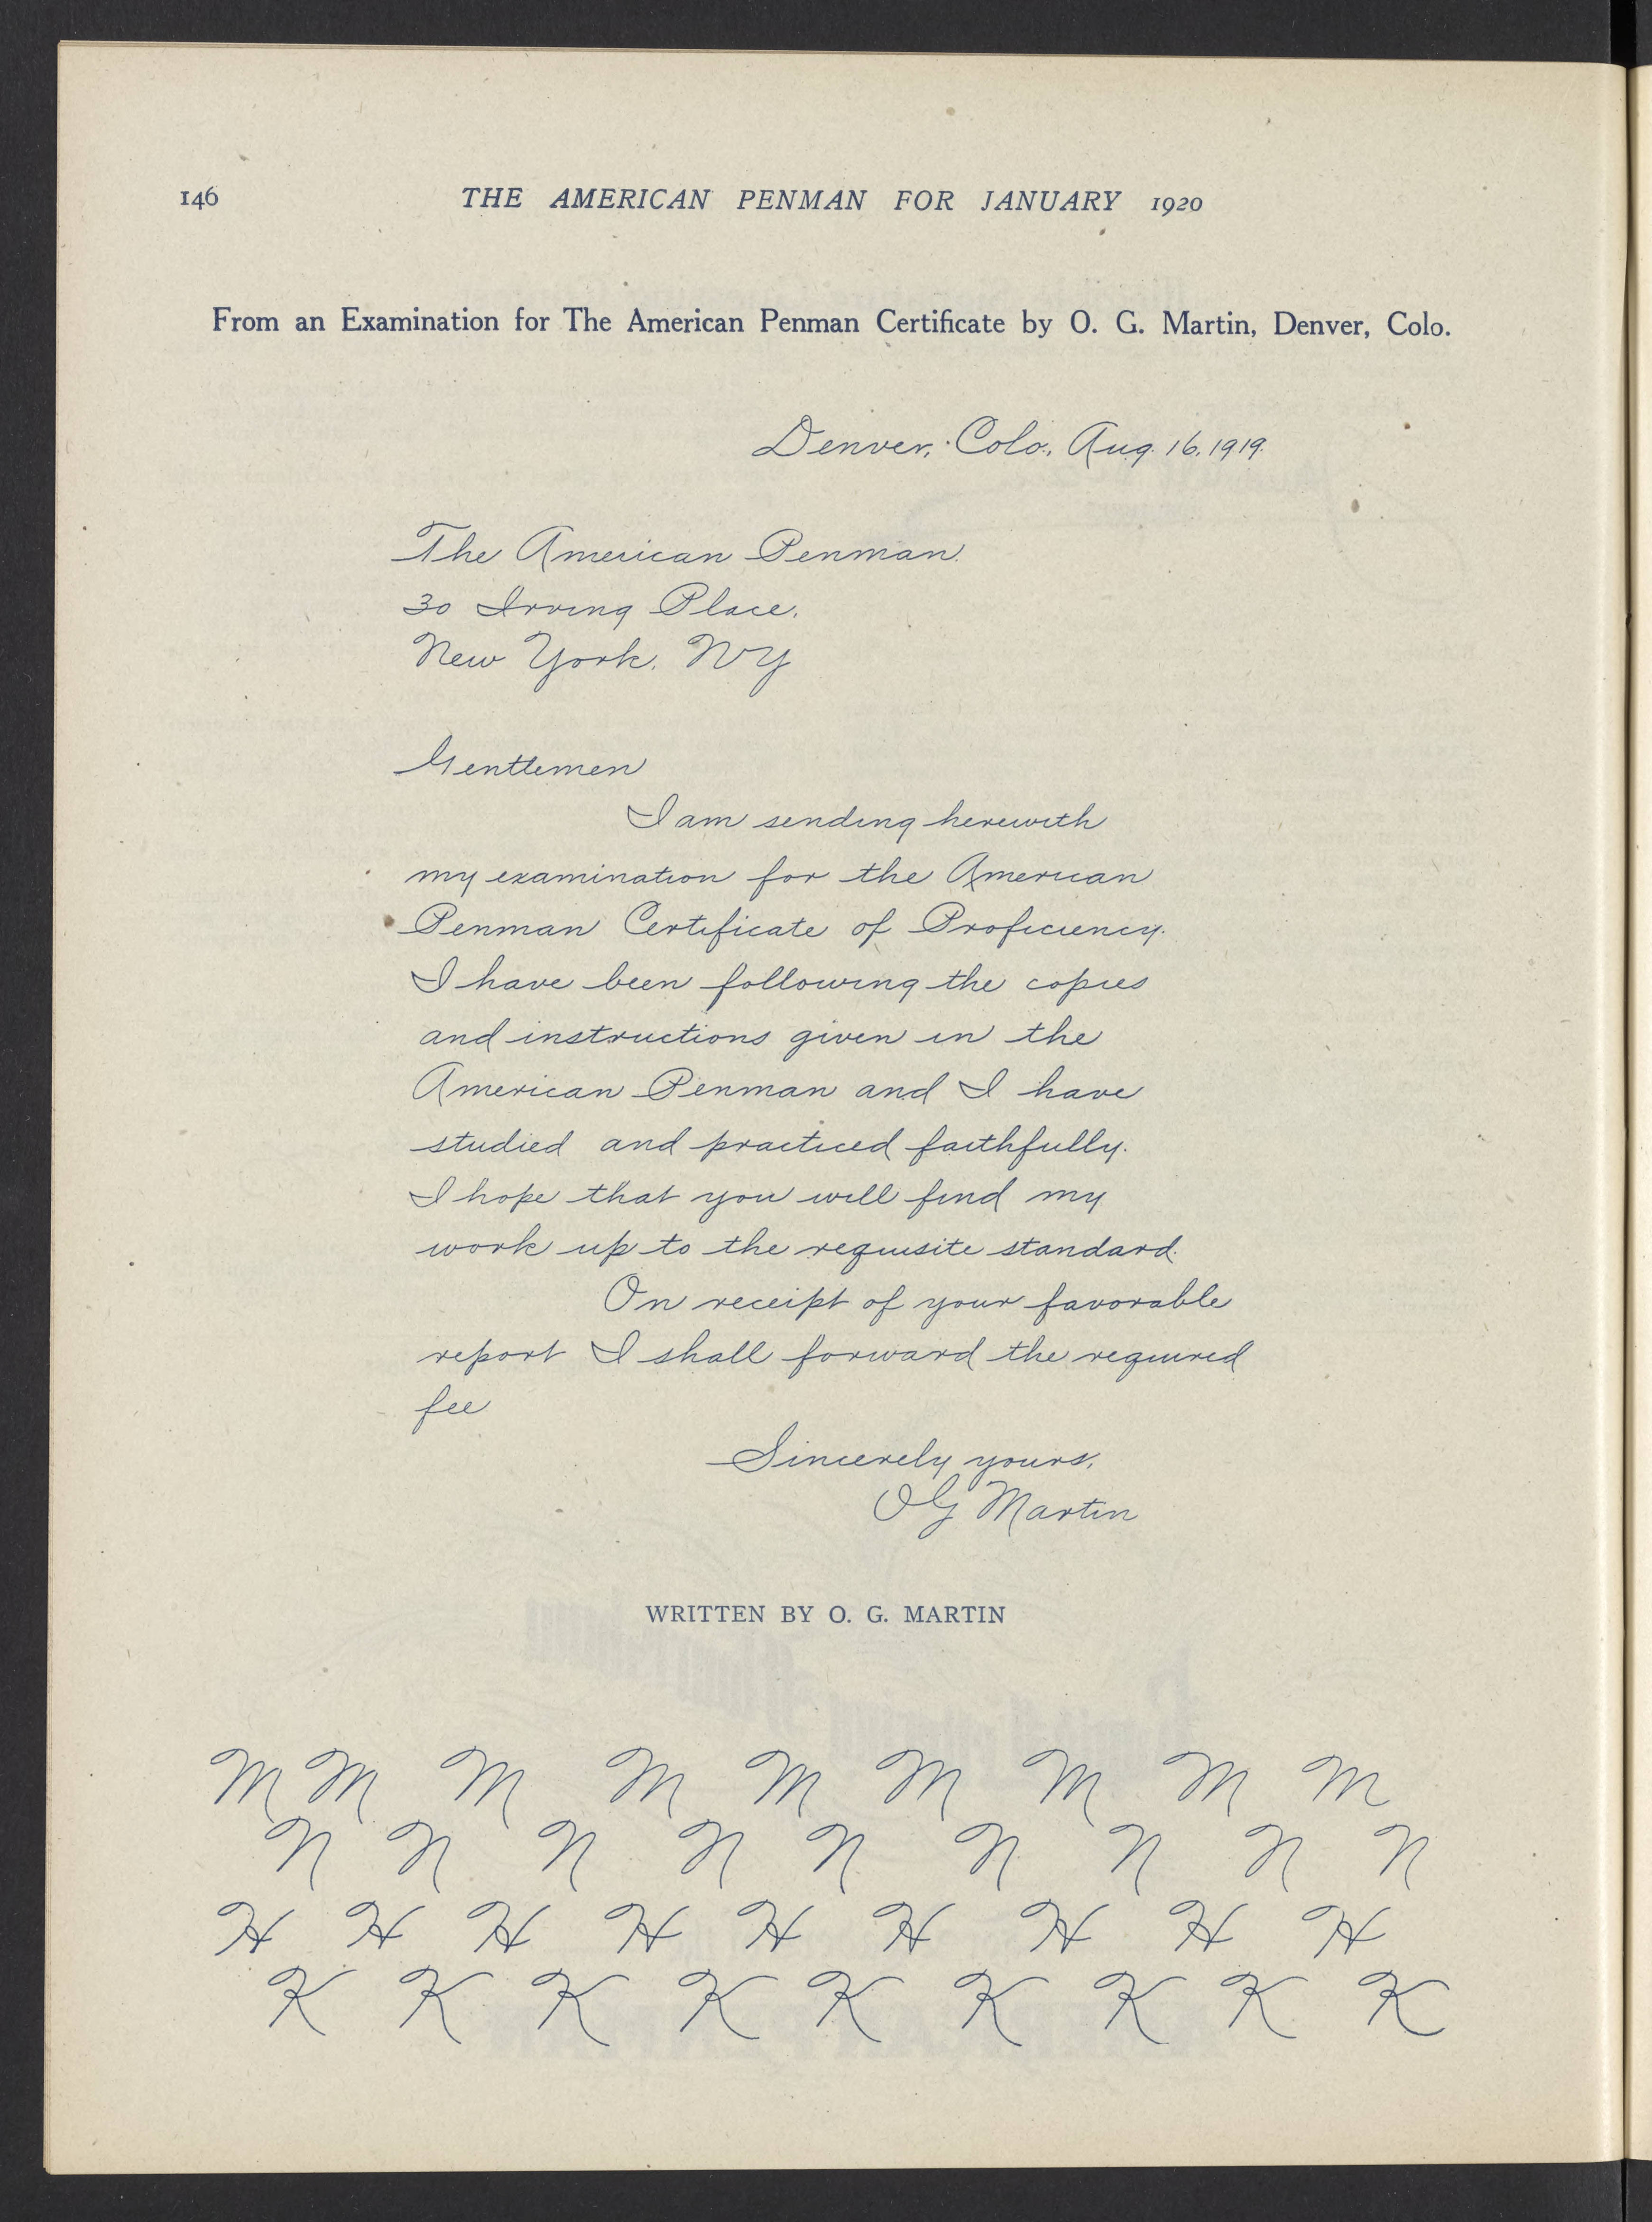 146 THE AMERICAN PENMAN FOR JANUARY 1920
From an Examination for The American Penman Certificate by O. G. Martin, Denver, Colo.
Denver, Colo., Aug. 16, 1919.
The American Penman.
30 Irving Place.
New York, NY
Gentlemen
I am sending herewith
my examination for the American
Penman Certificate of Proficiency.
I have been following the copies
and instructions given in the
American Penman and I have
studied and practiced faithfully.
I hope that you will find my
work up to the requisite standard.
On receipt of your favorable
report I shall forward the required
fee
Sincerely yours,
OG Martin
WRITTEN BY O. G. MARTIN
M M M M M M M M M
N N N N N N N N N
H H H H H H H H H
K K K K K K K K K